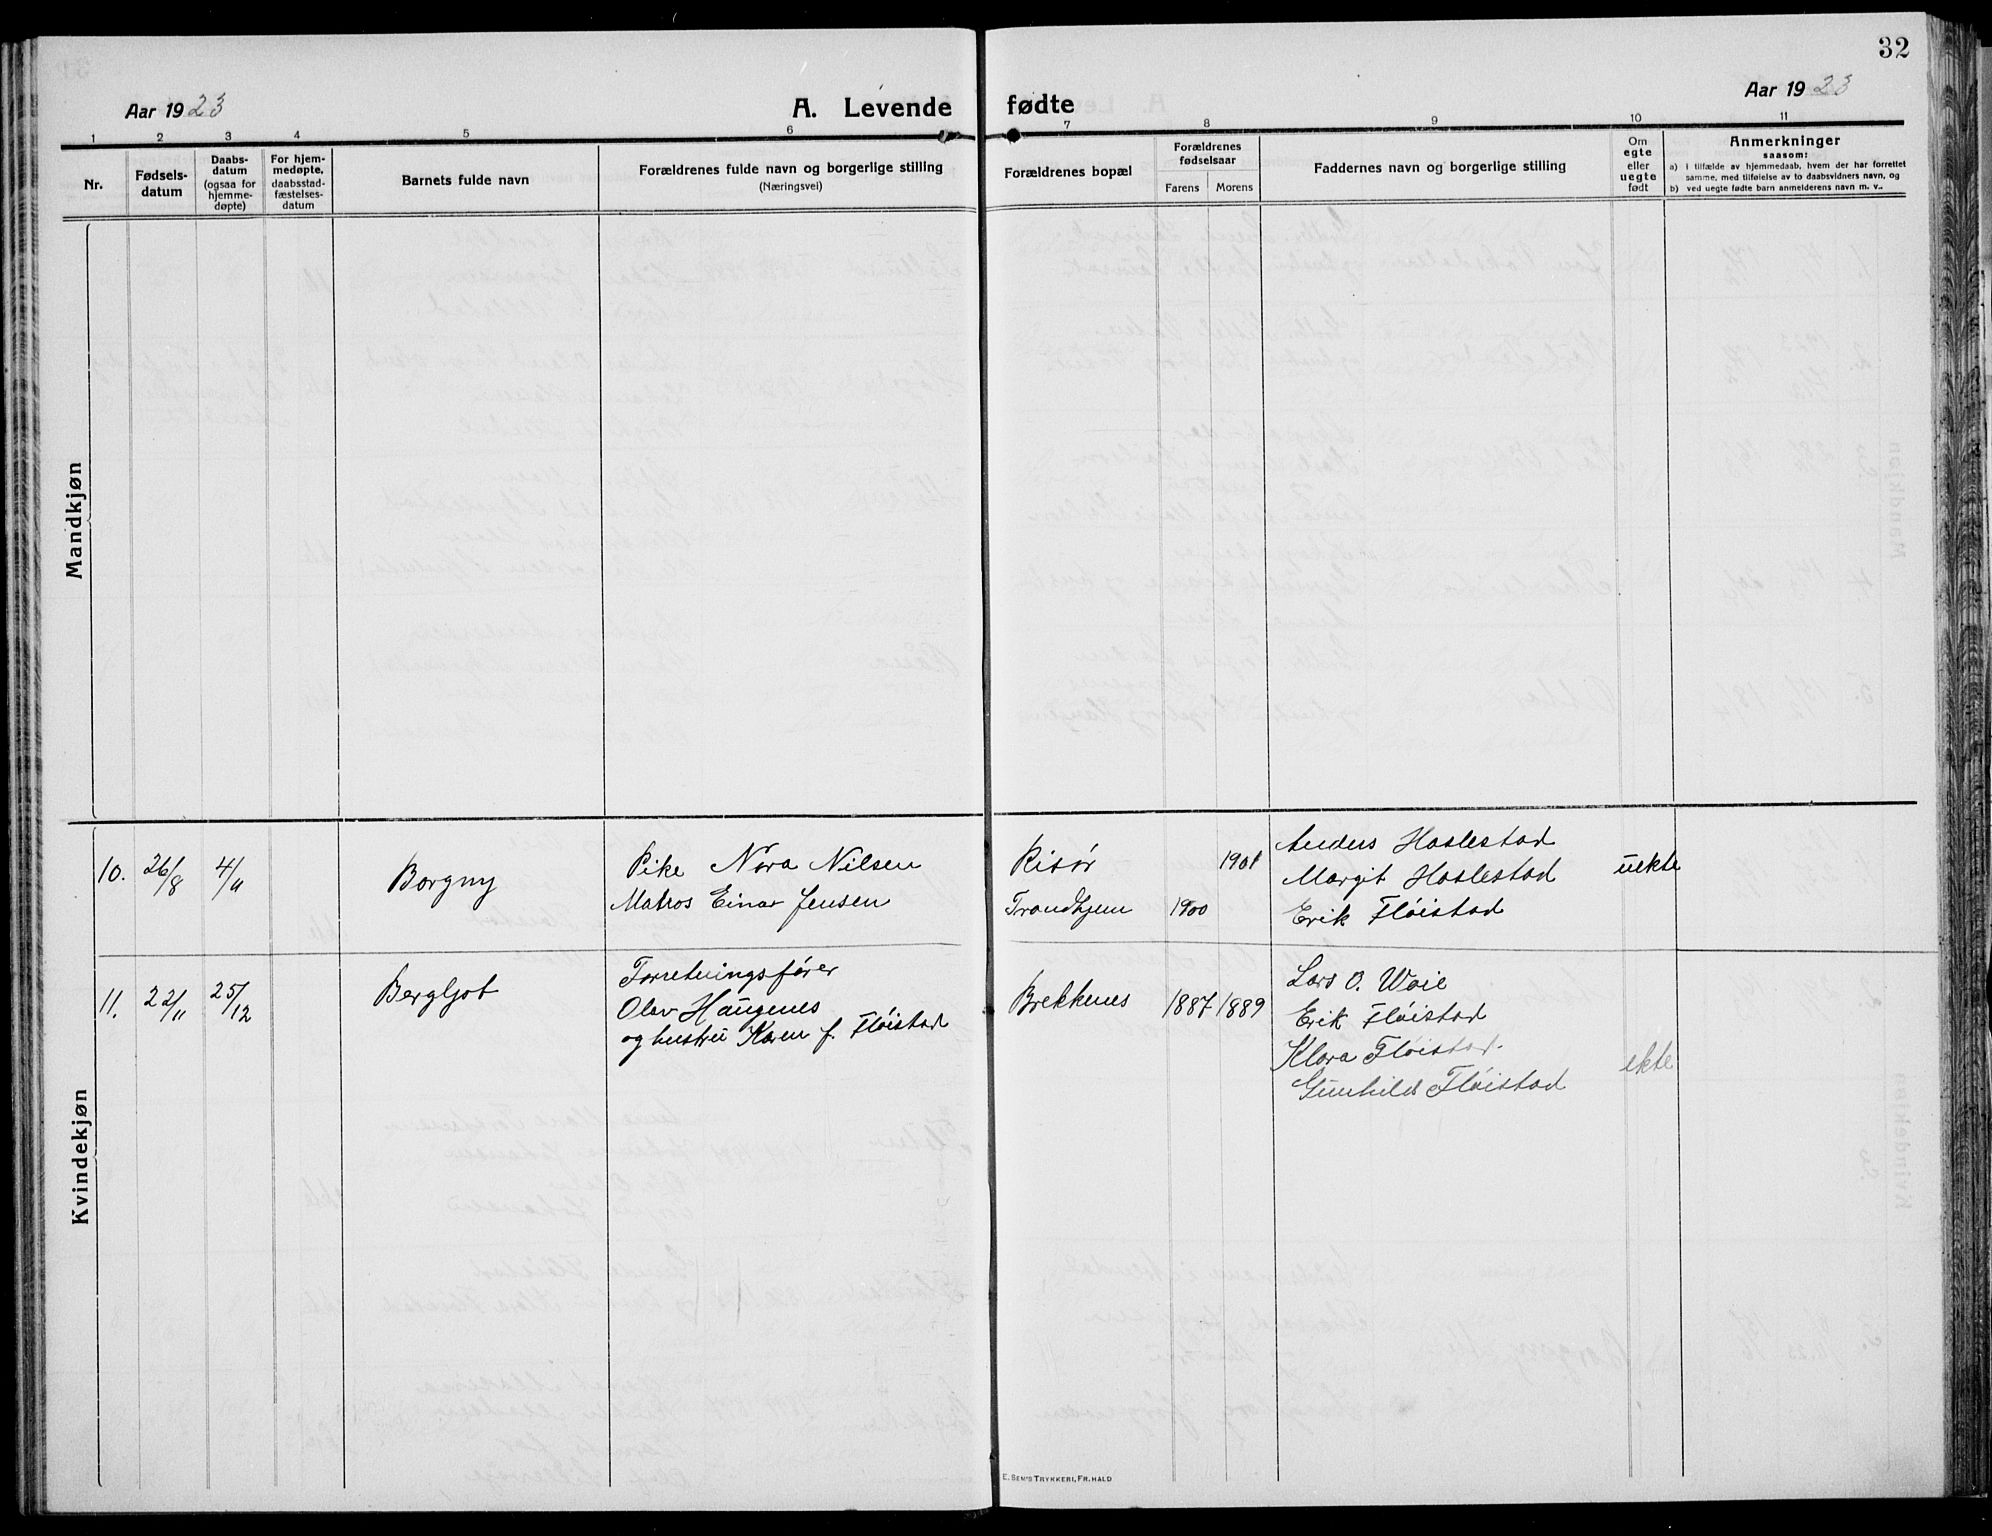 32
Aar 1923
A. Levende fødte
Aar 1923
1 2 3 4 5 6 7 8 9 10 11
Nr.
Fødsels-
datum
Daabs-
datum
(ogsaa for
hjemme-
døpte)
For hjem-
medøpte,
daabsstad-
fæstelses-
datum
Barnets fulde navn
Forældrenes fulde navn og borgerlige stilling
(Næringsvei)
Forældrenes bopæl
Forældrenes
fødselsaar
Farens Morens
Faddernes navn og borgerlige stilling
Om
egte
eller
uegte
født
Anmerkninger
saasom:
a) i tilfælde av hjemmedaab, hvem der har forrettet
samme, med tilføielse av to daabsvidners navn, og
b) ved uegte fødte barn anmelderens navn m. v..
Mandkjøn
Kvindekjøn
10. 26/8 4/11 Borgny
Pike Nora Nilsen
Matros Einar Jensen
Risör 1901
Trondhjem 1900
Anders Haslestad
Margit Haslestad
Erik Flöistad
uekte
11. 22/11 25/12 Bergljot
Forretningsfører
Olav Haugenes
og hustru Karen f. Flöistad
Brekkenes 1887 1889
Lars O. Waie
Erik Flöistad
Klara Flöistad
Gunhild Flöistad
ekte
E. SEM'S TRYKKERI, FR.HALD